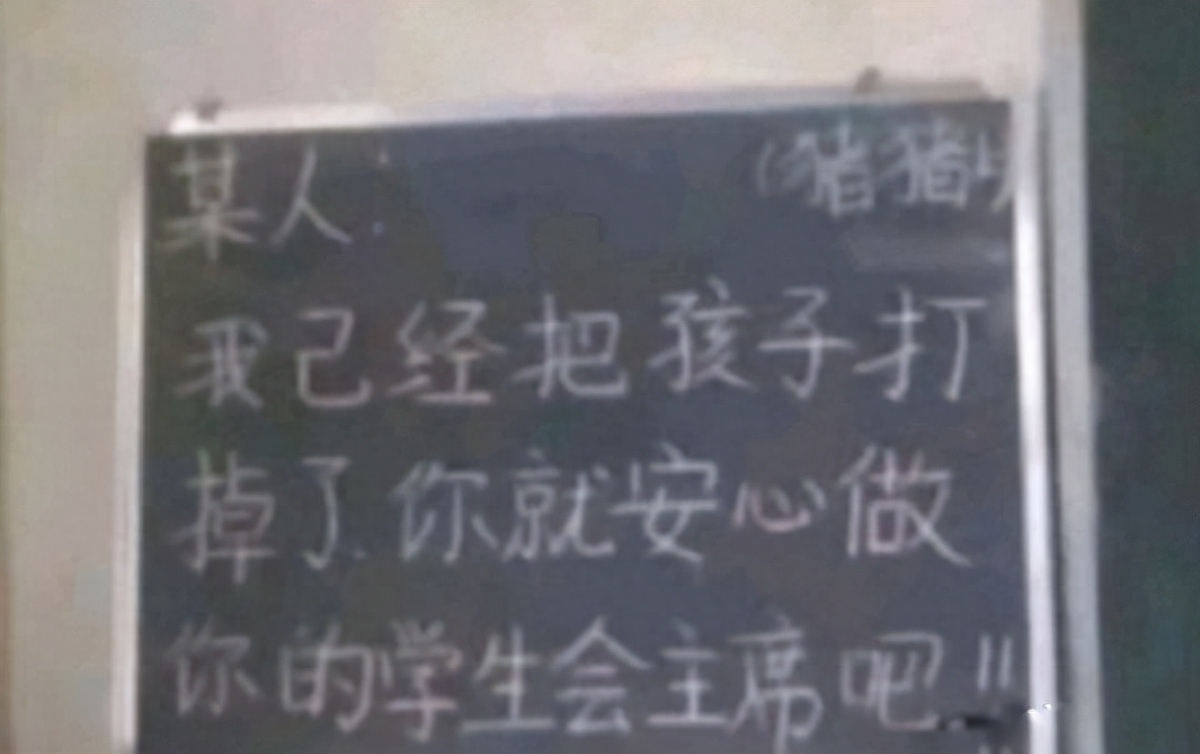 某人: (猪猪
我己经把孩子打
掉了.你就安心做
你的学生会主席吧!!